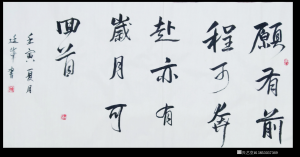 願有前
程可奔
赴亦有
歲月可
回首
壬寅夏月